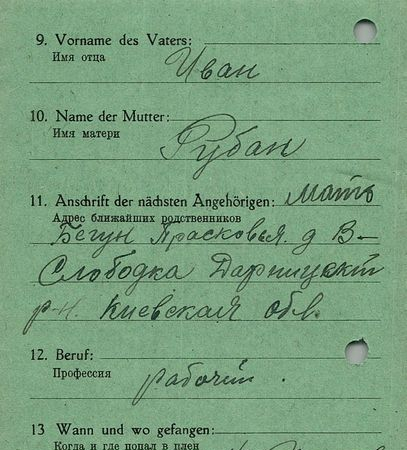 9. Vorname des Vaters:
Имя отца
Иван
10. Name der Mutter:
Имя матери
Рубан
11. Anschrift der nächsten Angehörigen: Мать
Адрес ближайших родственников
Бегун Прасковья. д В-
Слободка Дарницкий
р-н. Киевская обл.
12. Beruf:
Профессия
рабочий.
13 Wann und wo gefangen:
Когда и где попал в плен